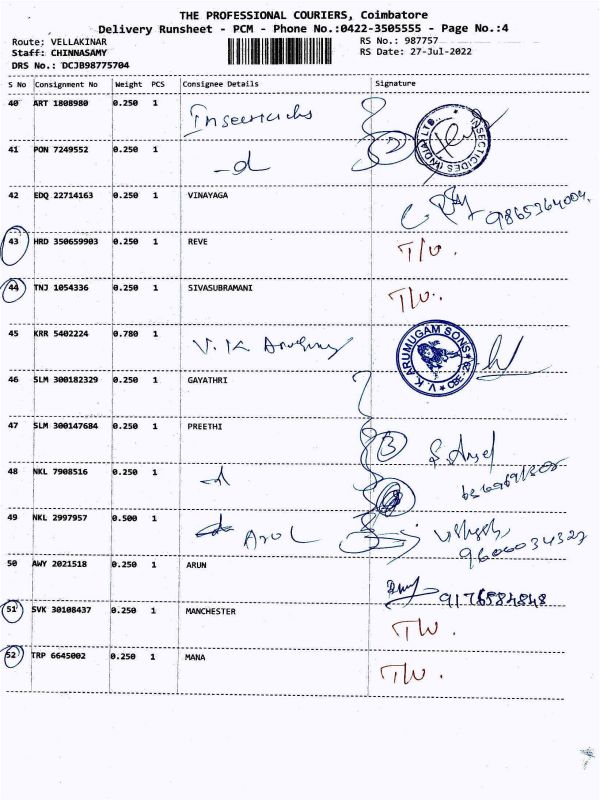 THE PROFESSIONAL COURIERS, Coimbatore
Delivery Runsheet - PCM - Phone No.:0422-3505555 - Page No.:4
Route: VELLAKINAR RS No.: 987757
Staff: CHINNASAMY RS Date: 27-Jul-2022
DRS No.: DCJB98775704
S No Consignment No Weight PCS Consignee Details Signature
40 ART 1808980 0.250 1 Insecticides
INSECTICIDES (INDIA) LTD.
41 PON 7249552 0.250 1 -d
42 EDQ 22714163 0.250 1 VINAYAGA 9865364004.
43 HRD 350659903 0.250 1 REVE T/W.
44 TNJ 1054336 0.250 1 SIVASUBRAMANI T/W.
45 KRR 5402224 0.780 1 V. K
V. K. ARUMUGAM SONS CBE
46 SLM 300182329 0.250 1 GAYATHRI
47 SLM 300147684 0.250 1 PREETHI 3
48 NKL 7908516 0.250 1 d
49 NKL 2997957 0.500 1 Arul
50 AWY 2021518 0.250 1 ARUN 9176584848
51 SVK 30108437 0.250 1 MANCHESTER T/W.
52 TRP 6645002 0.250 1 MANA T/W.